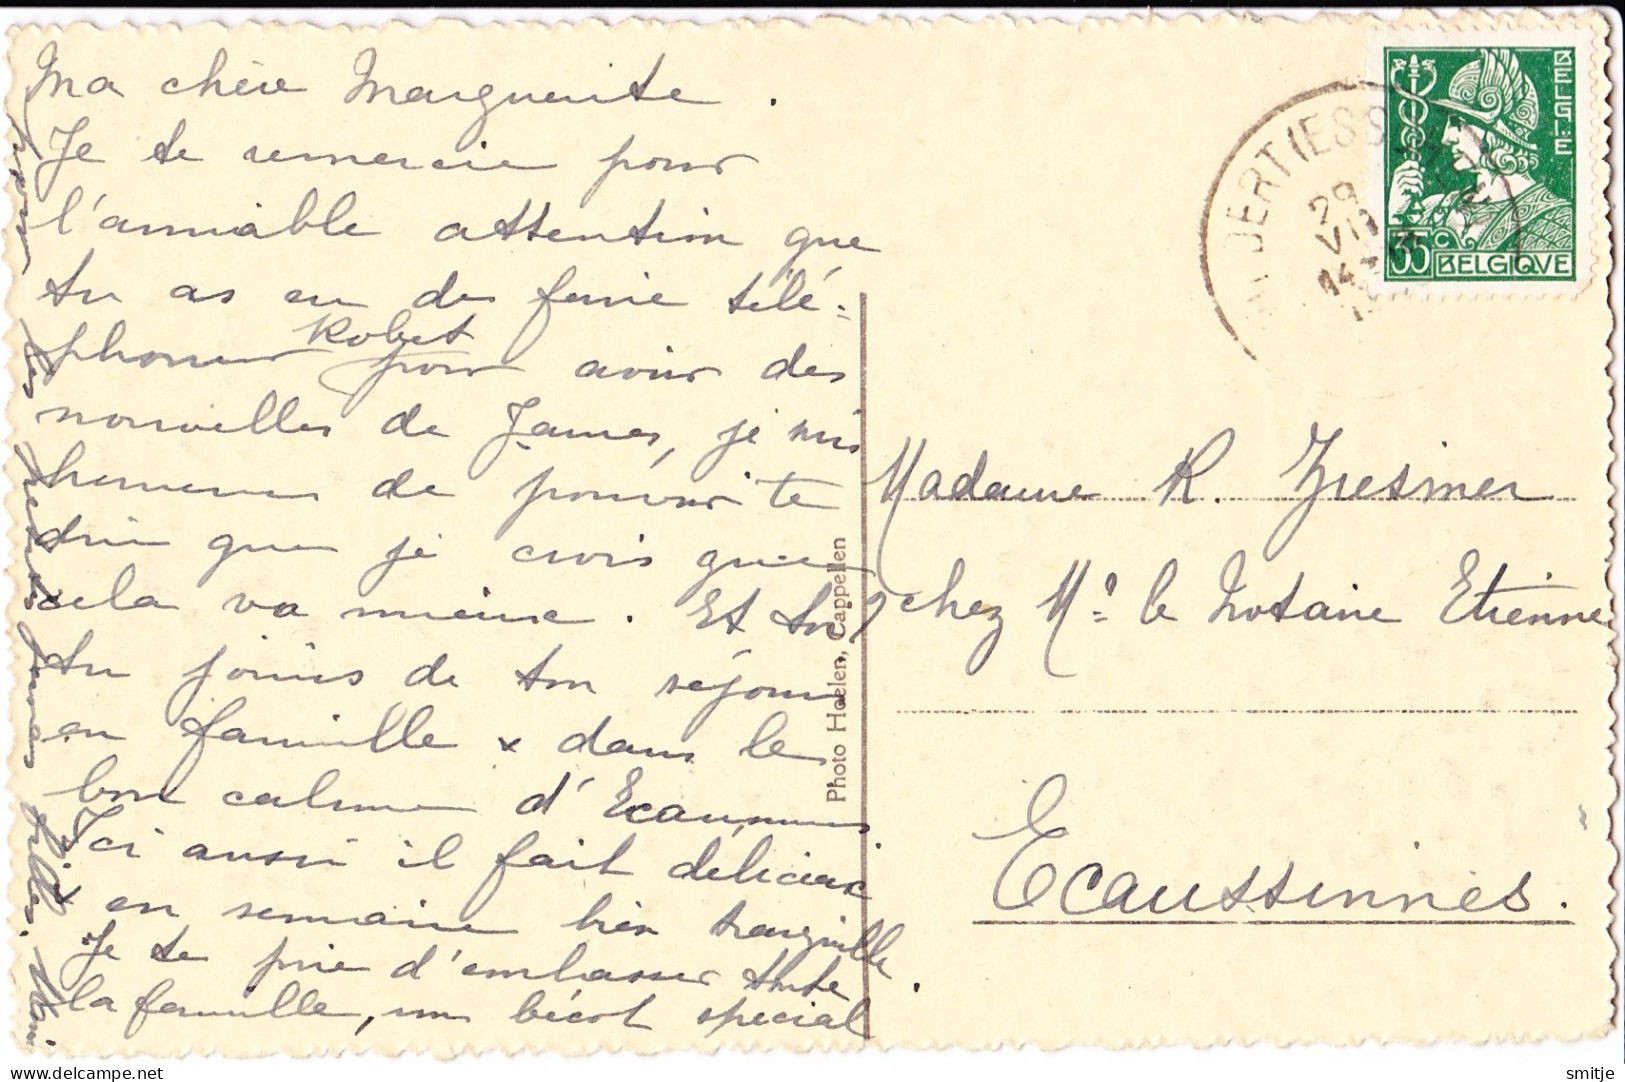 Ma chère Marguerite.
Je te remercie pour
l'aimable attention que
tu as eu de faire télé-
phoner Robert pour avoir des
nouvelles de James, je suis
heureuse de pouvoir te
dire que je crois que
cela va mieux. Et toi?
tu jouis de ton séjour
en famille x dans le
bon calme d'Ecaussinnes
Ici aussi il fait délicieux
x en semaine bien tranquille.
Je te prie d'embrasser toute
la famille, un bécot spécial
pour les petites jumelles filles.
BELGIË
35 C
BELGIQUE
29
VII
14
Photo Hoelen, Cappellen
Madame R.
chez Mr le Notaire Etienne
Ecaussinnes.
smitje